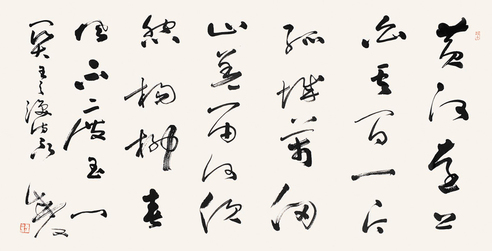 黄河远上
白云间一片
孤城万仞
山羌笛何须
怨杨柳春
风不度玉门
关王之涣诗